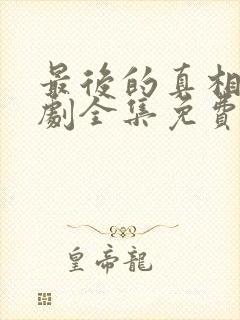 最後的真相
劇全集免費
皇帝龍